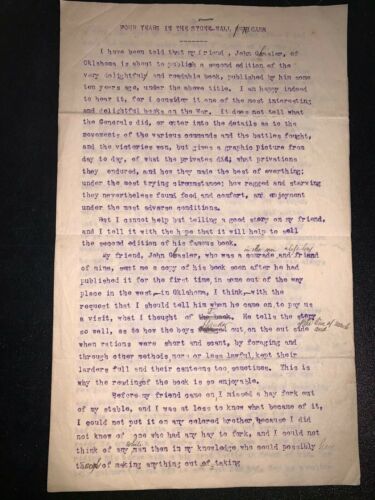 FOUR YEARS IN THE STONE WALL BRIGADE
I have been told that my friend, John Casler, of
Oklahoma is about to publish a second edition of the
very delightfuly and readable book, published by him some
ten years ago, under the above title. I am happy indeed
to hear it, for I consider it one of the most interesting
and delightful books on the War. It does not tell what
the Generals did, or enter into the details as to the
movements of the various commands and the battles fought,
and the victories won, but gives a graphic picture from
day to day, of what the privates did; what privations
they endured, and how they made the best of everything;
under the most trying circumstance; how ragged and starving
they nevertheless found food and comfort, and enjoyment
under the most adverse conditions.
But I cannot help but telling a good story on my friend,
and I tell it with the hope that it will help to sell
the second edition of his famous book.
in the war
My friend, John Casler, who was a comrade and friend
of mine, sent me a copy of his book soon after he had
published it for the first time, in some out of the way
place in the west,-in Oklahoma, I think,-with the
request that I should tell him when he came on to pay us
a visit, what I thought of the book. He tells the story
so well, as to how the boys out on the out side
the line of march and
when rations were short and scant, by foraging and
through other methods more or less lawful, kept their
larders full and their canteens too sometimes. This is
why the reading of the book is so enjoyable.
Before my friend came on I missed a hay fork out
of my stable, and I was at loss to know what became of it,
I could not put it on any colored brother, because I did
not know of one who had any hay to fork, and I could not
white
think of any man then in my knowledge who could possibly
of making anything out of taking